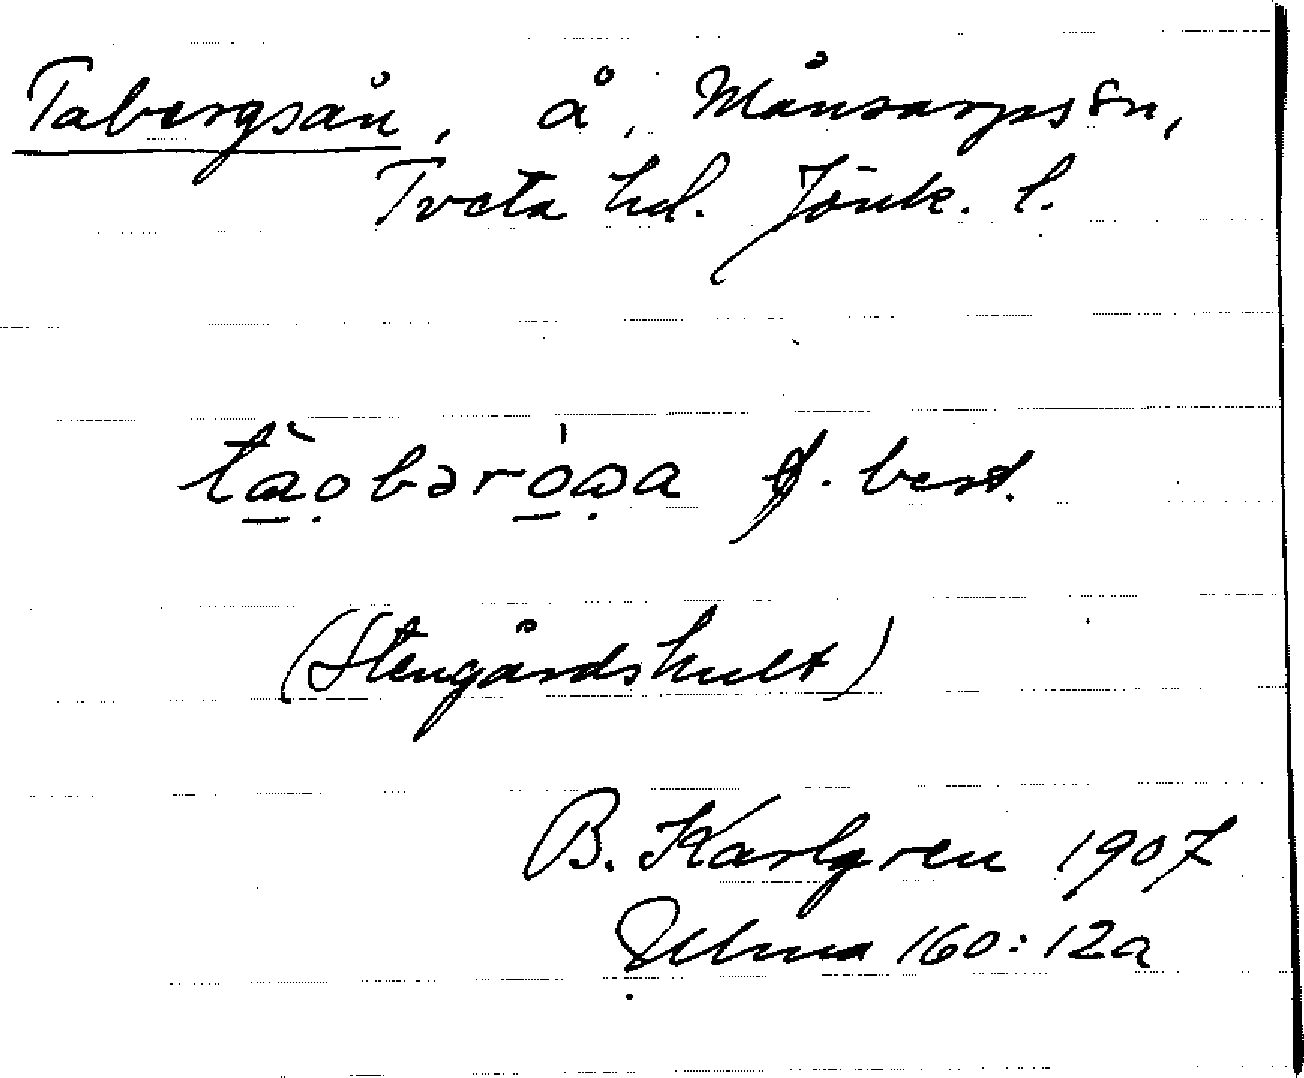 Tabergsån, å, Månsarps sn,
Tveta hd. Jönk. l.
tàobəróaa f. best.
(Stengårdshult)
B. Karlgren 1907
Ulma 160:12a